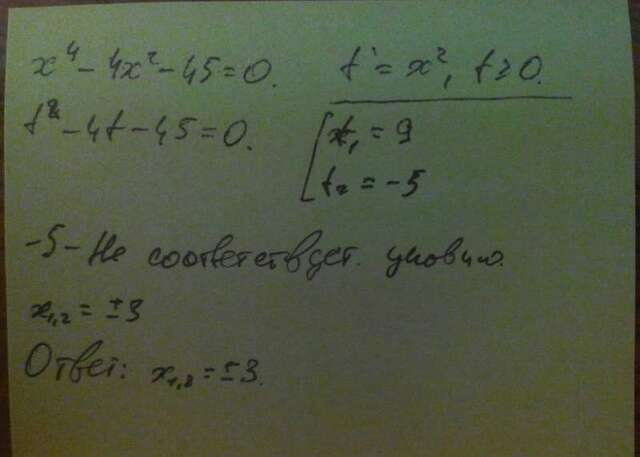 x⁴ - 4x² - 45 = 0. t = x², t ≥ 0.
t² - 4t - 45 = 0. [ t₁ = 9
t₂ = -5
-5 - Не соответствует. условию.
x₁,₂ = ±3
Ответ: x₁,₂ = ±3.